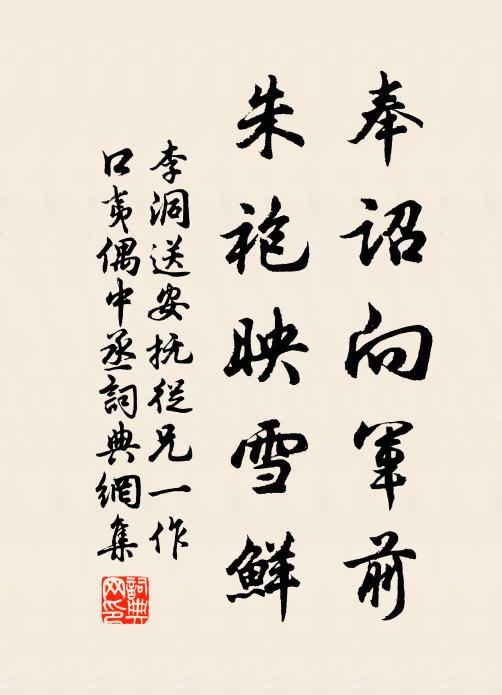 奉詔向軍前
朱袍映雪鮮
李洞送安抚従兄一作
口夷偶中丞詞典網集
詞典网印